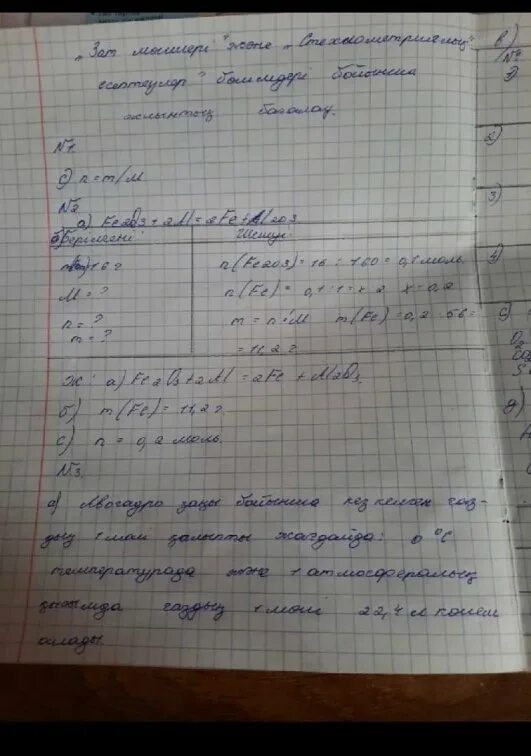 „Зат мөлшері" және „Стехиометриялық
есептеулер" бөлімдері бойынша
жиынтық бағалау.
№1.
С) n=m/M
№2
а) Fe2O3+2Al=2Fe+Al2O3
Берілгені: Шешуі:
16 г n(Fe2O3)=16:160=0,1 моль
M=? n(Fe)=0,1:1=x:2 x=0,2
n=? m=n·M m(Fe)=0,2·56=
m=? =11,2 г
Ж: а) Fe2O3+2Al=2Fe+Al2O3
б) m(Fe)=11,2 г.
с) n=0,2 моль.
№3.
а) Авогадро заңы бойынша кез келген газ-
дың 1 моль қалыпты жағдайда: 0 °C
температурада және 1 атмосфералық
қысымда газдың 1 моль 22,4 л көлем
алады.
В)
№
2)
3)
4)
O2